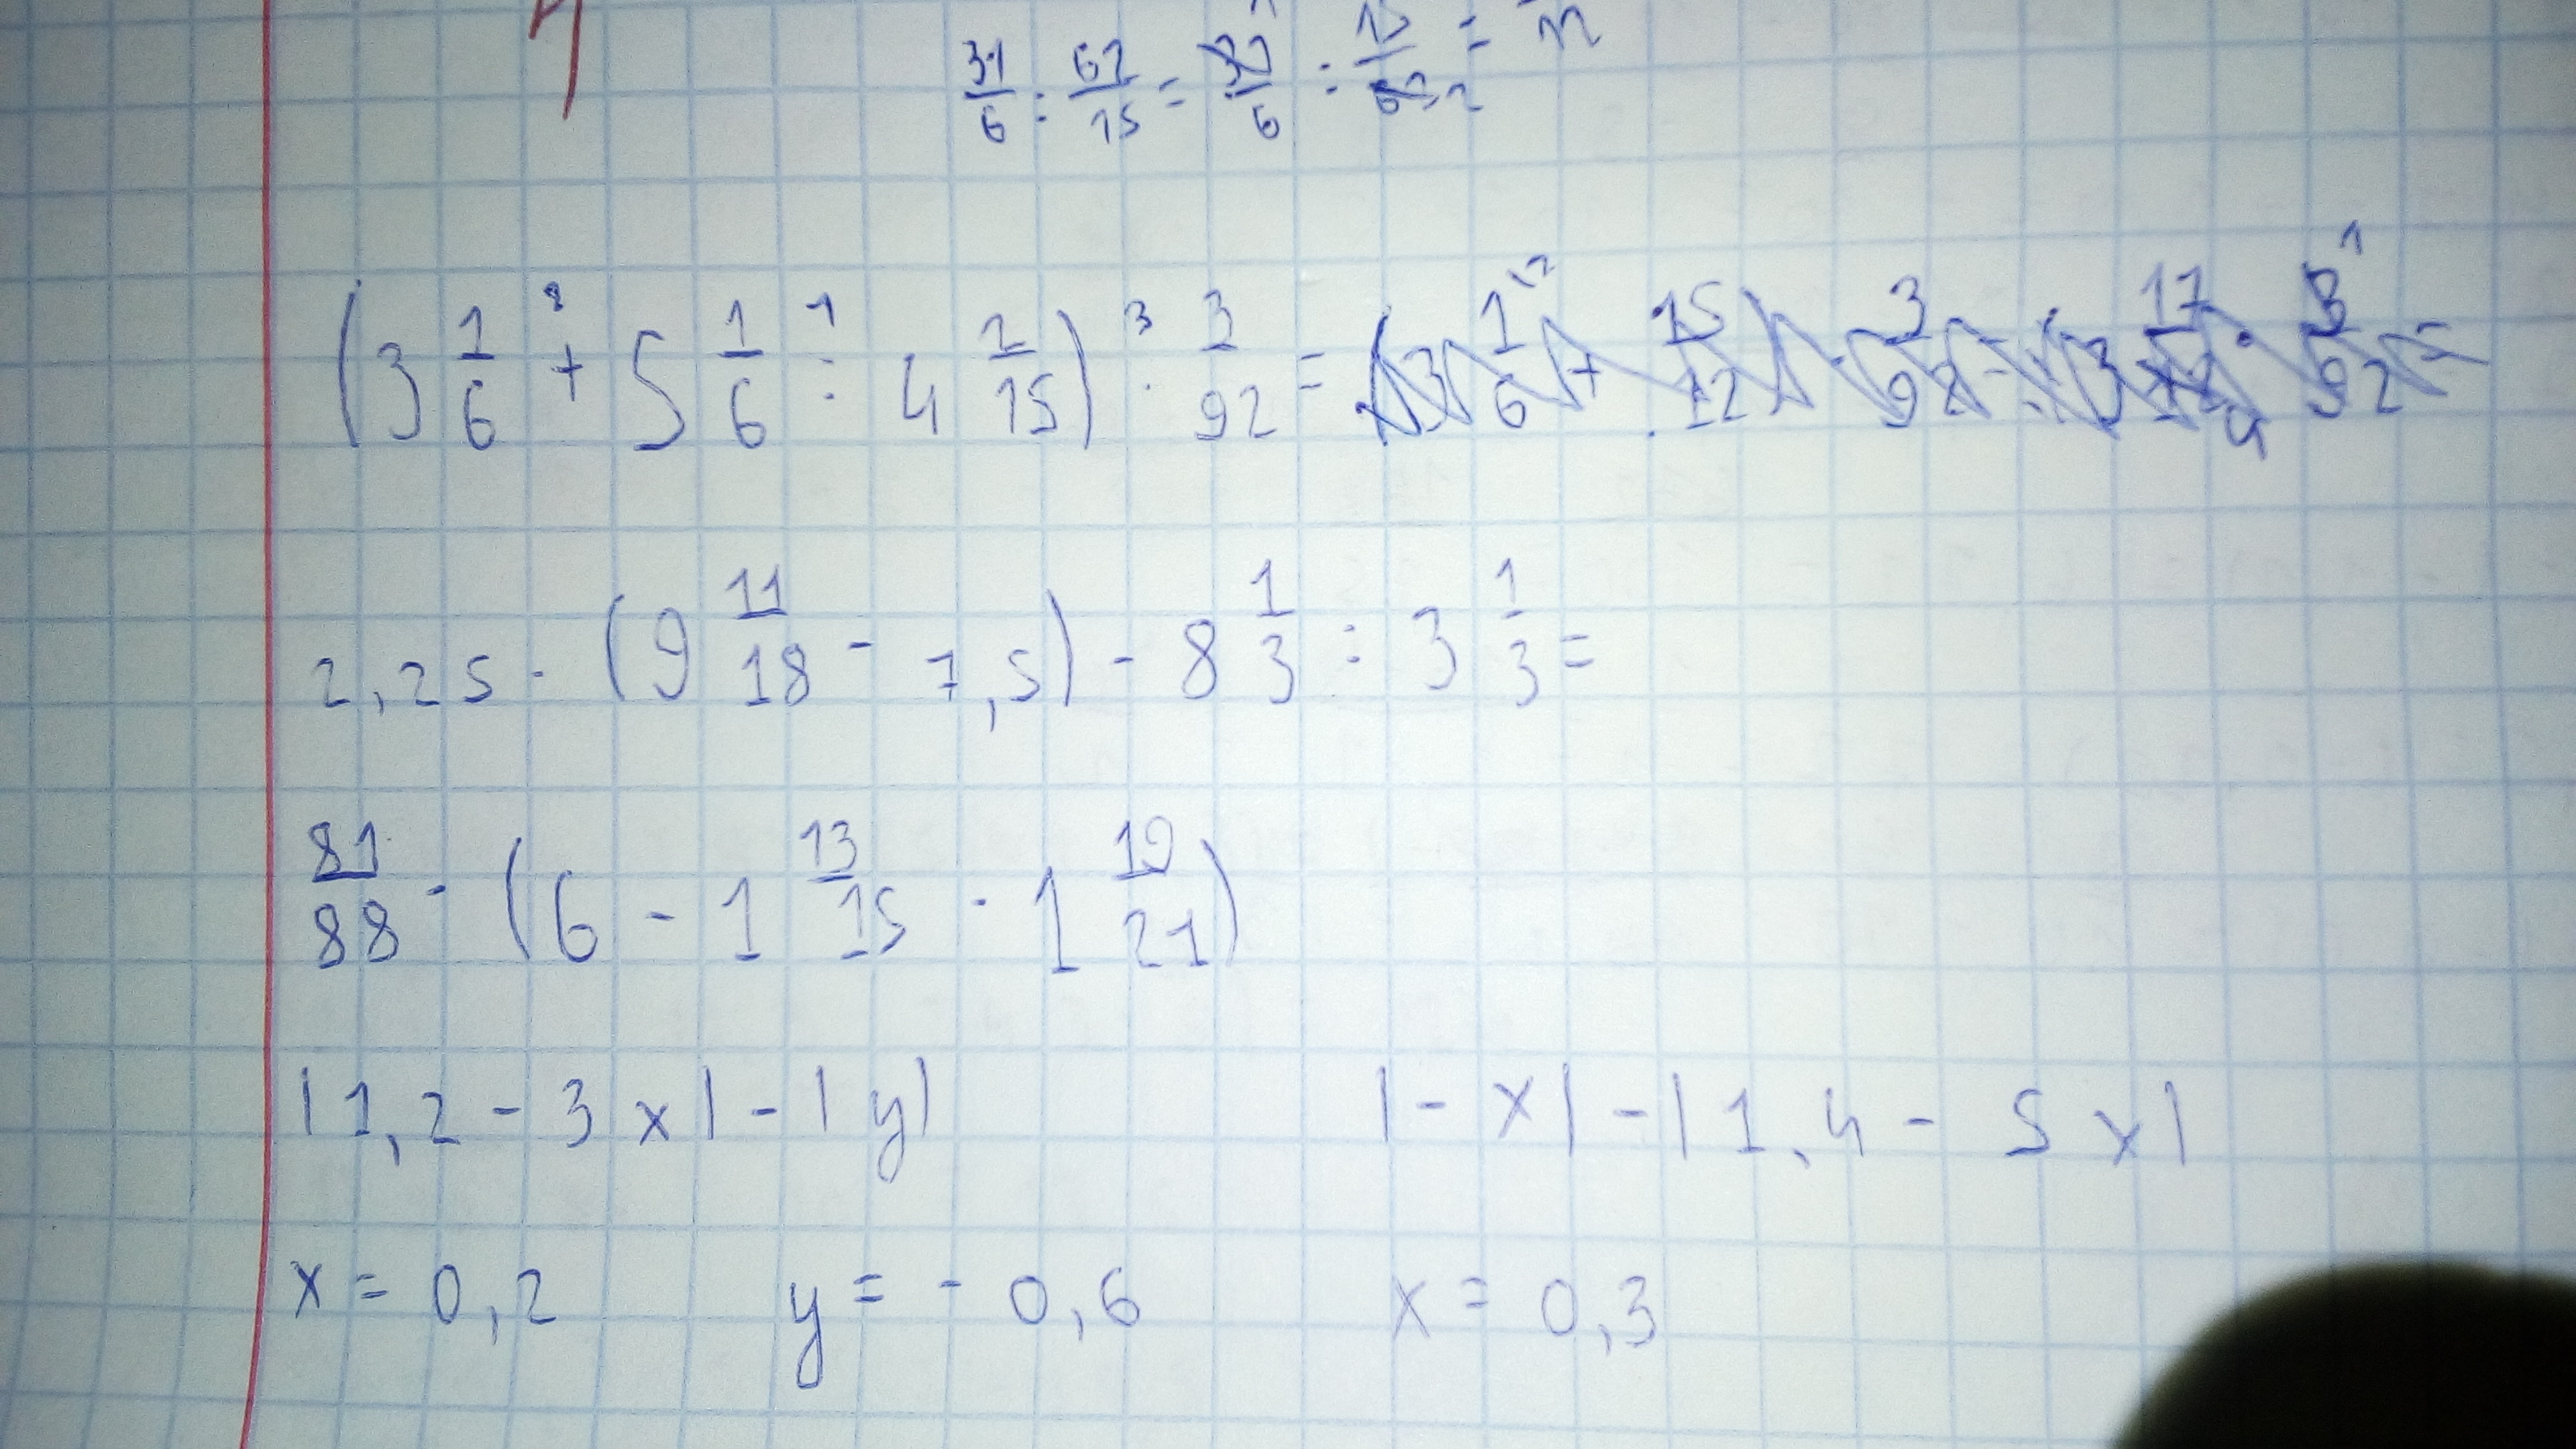 31/6 : 62/15 = 31/6 : 15/62 2 =
(3 1/6 + 5 1/6 : 4 2/15) · 3/92 = (3 1/6 + 15/12) · 3/92 = (3 17/12 · 3/92 =
2,25 · (9 11/18 - 7,5) - 8 1/3 : 3 1/3 =
81/88 · (6 - 1 13/15 · 1 19/21)
|1,2 - 3x| - |y| |-x| - |1,4 - 5x|
x = 0,2 y = -0,6 x = 0,3